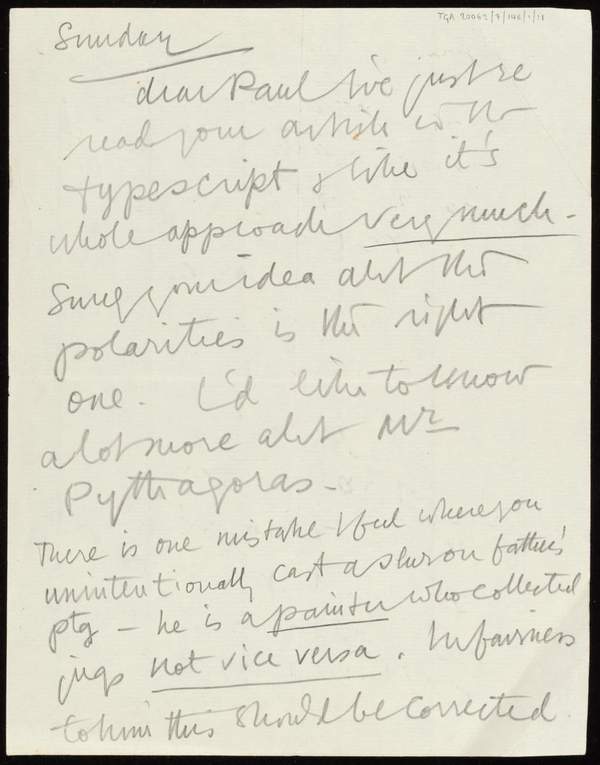 TGA 20062/7/146/1/18
Sunday
dear Paul I've just re
read your article in the
typescript & like it's
whole approach very much -
Surely your idea abt the
polarities is the right
one. I'd like to know
a lot more abt Mr
Pythagoras -
There is one mistake I feel where you
unintentionally cast a slur on father's
ptg - he is a painter who collected
jugs not vice versa. In fairness
to him this should be corrected.